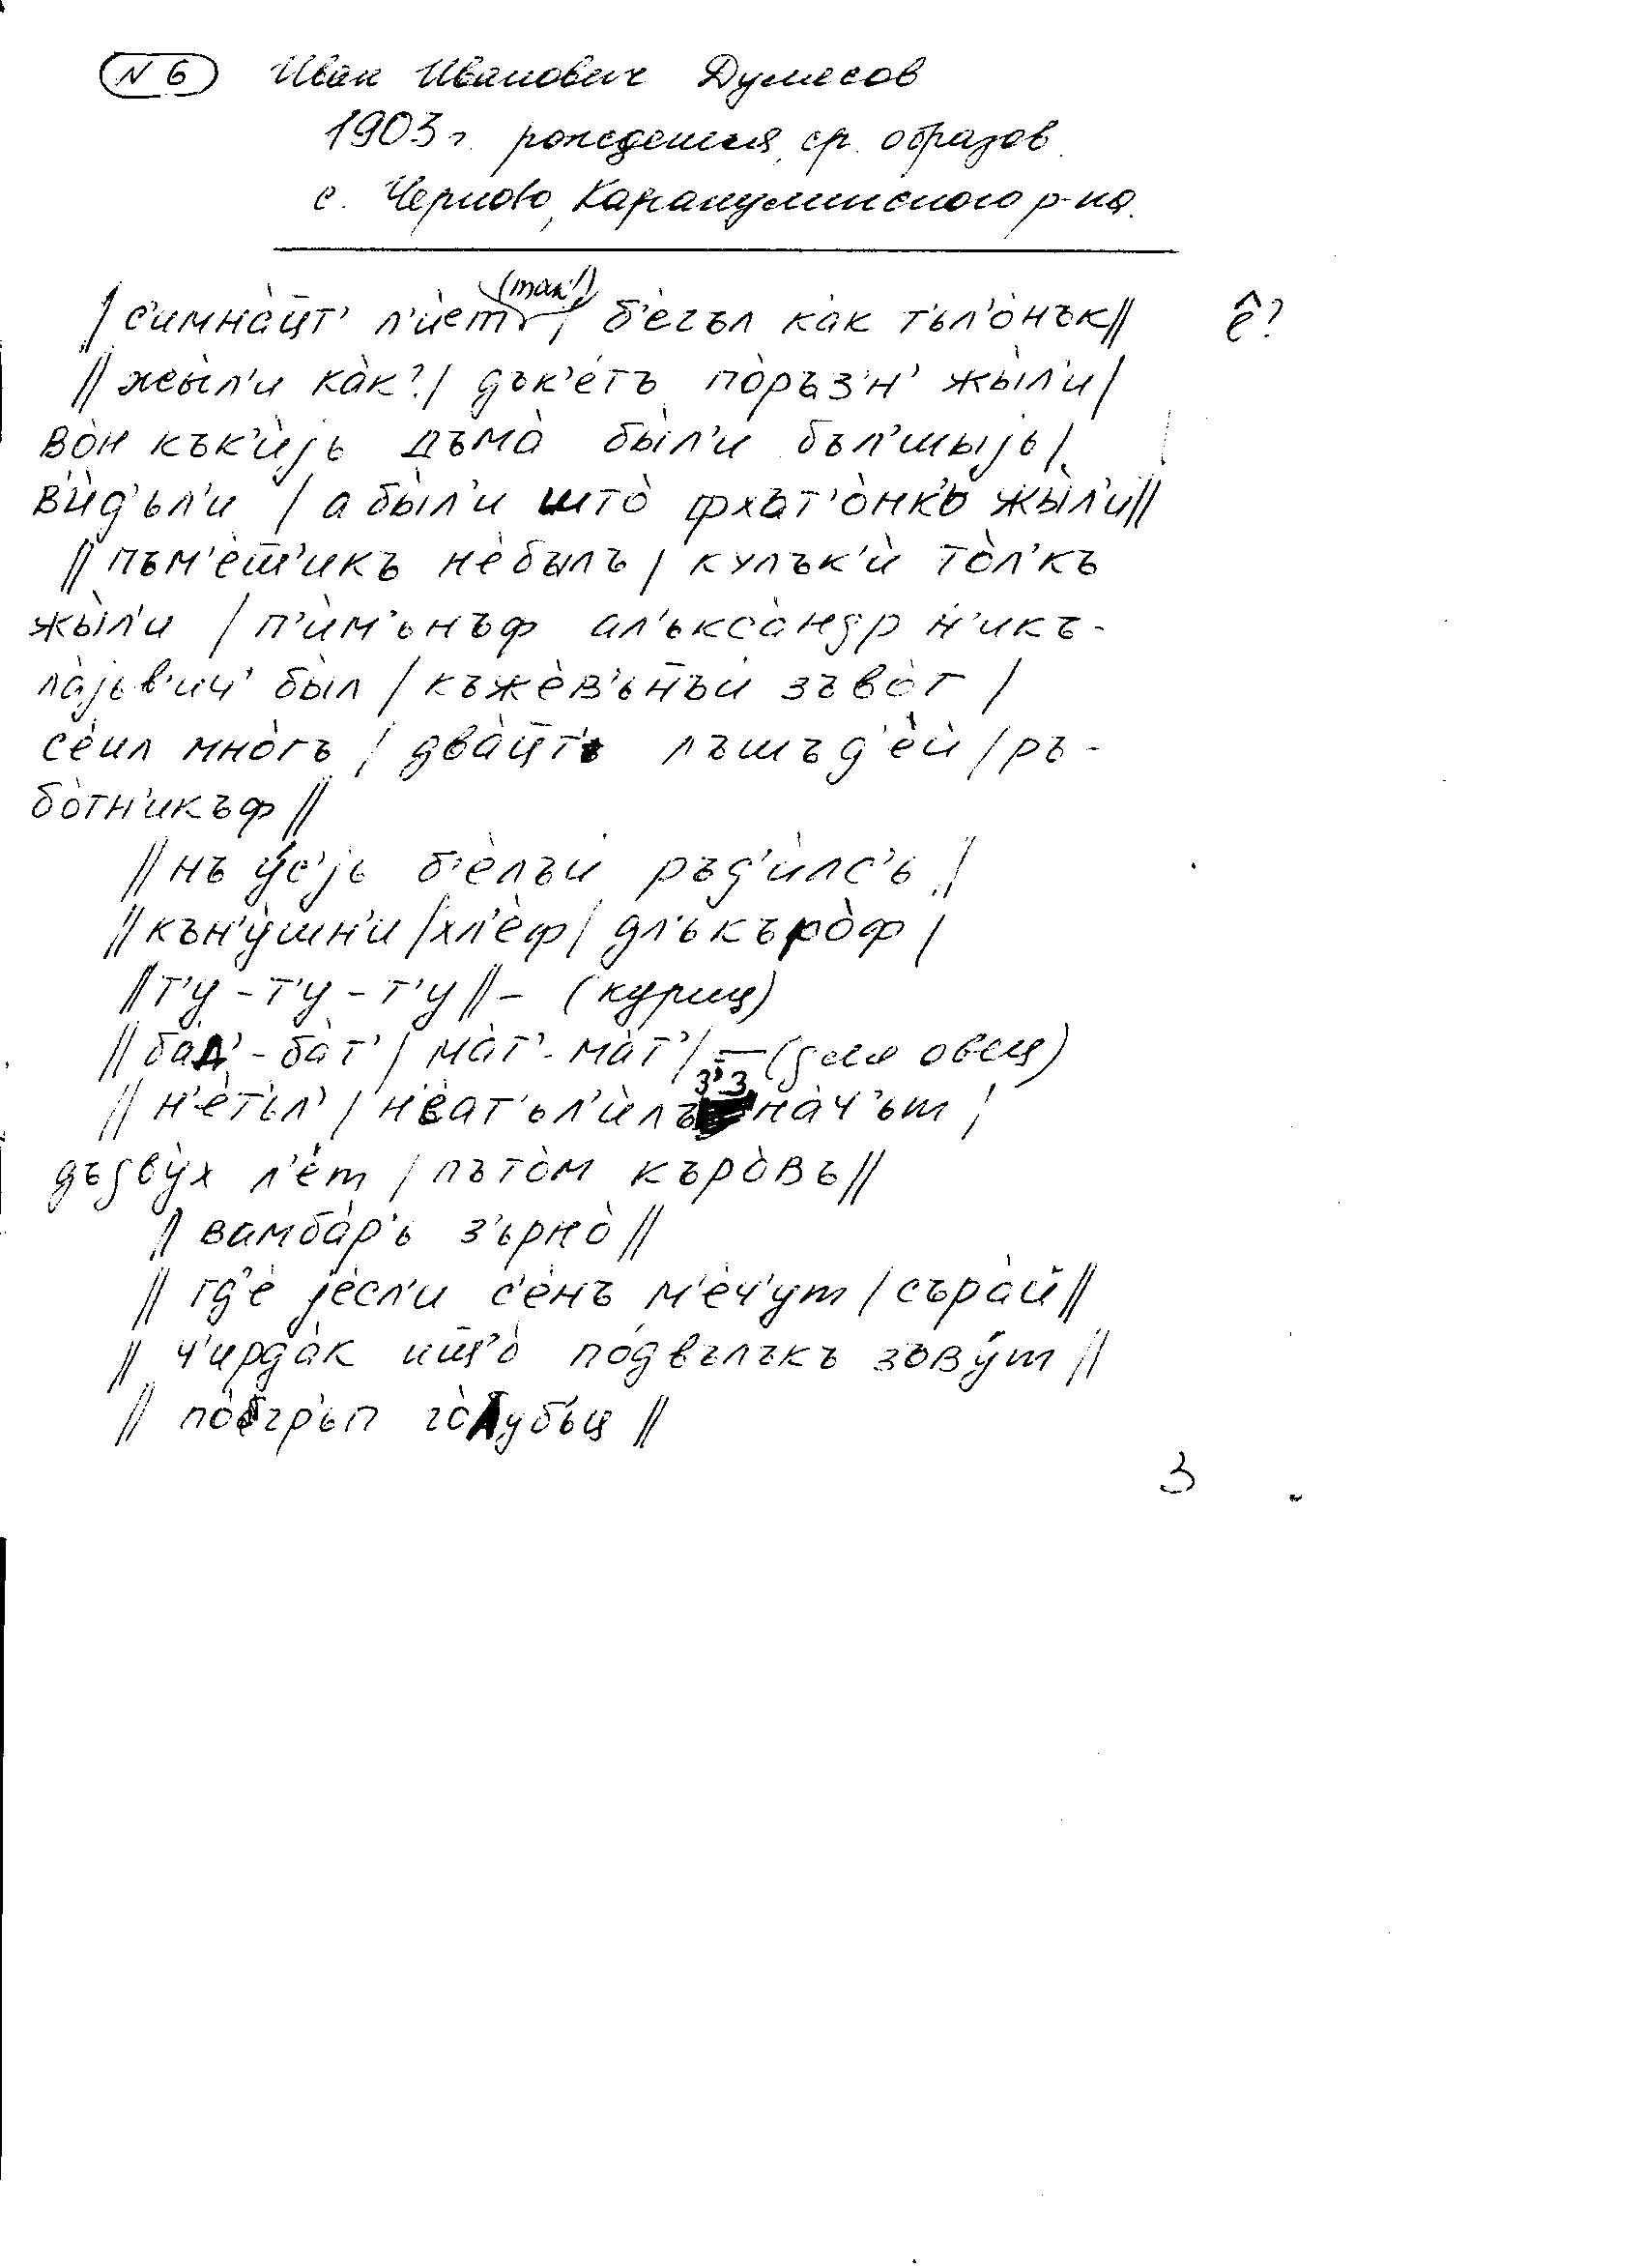 N 6 Иван Иванович Думесов
1903 г. рождения, ср. образов.
с. Черново, Каракулинского р-на.
(так!)
| с'имна̀ц̅т' л'ѝет | б'ѐгъл ка̀к т'ьл'о̀нък || ê?
|| жы̀л'и ка̀к? / дък'е́тъ по̀ръз'н' жы̀л'и |
во̀н кък'ѝjь дъма̀ бы̀л'и бъл'шыjь |
в'ѝд'ьл'и / а бы̀л'и што̀ фхат'о̀нкъ жы̀л'и ||
|| пъм'ѐт̅'икъ нѐбылъ / кулък'ѝ то̀л'къ
жы̀л'и / п'ѝм'ьнъф ал'ькса̀ндр н'икъ-
ла̀jьв'ич' бы̀л / къжѐв'ьн̅ъй зъво̀т /
сѐил мно̀гъ / два̀ц̅т'ь лъшъд'ѐй / ръ-
бо̀тн'икъф ||
|| нъ у́с'jь б'ѐлъй ръд'ѝлс'ъ ||
|| кън'у̀шн'и / хл'ѐф / дл'ькъро̀ф /
|| т'у - т'у - т'у || - (куриц)
|| ба̀д' - ба̀т' / ма̀т' - ма̀т' / — (для овец)
|| н'ѐт'ьл' / нѐат'ьл'ѝлъз'з на̀ч'ьт /
дъдву̀х л'ѐт / пъто̀м къро̀въ ||
|| вамба̀р'ь з'ьрно̀ ||
|| гд'ѐ jѐсл'и с'ѐнъ м'ѐч'ут / съра̀й ||
|| ч'ирда̀к ип̅'о̀ по́двълъкъ зову́т ||
|| по̀бгр'ьп го̀лубьц ||
3